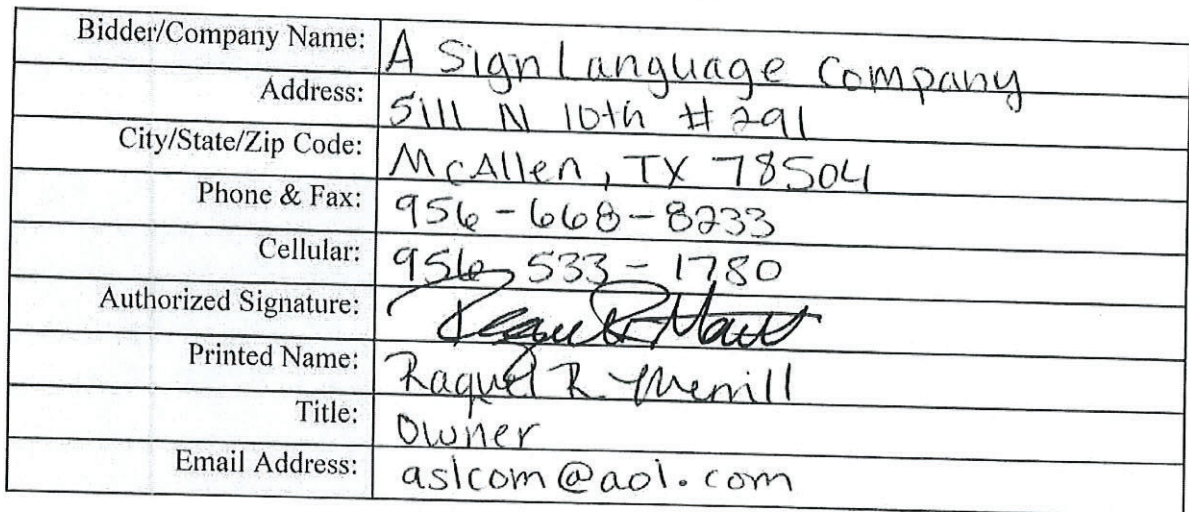 Bidder/Company Name: A Sign Language Company
Address: 5111 N 10th # 291
City/State/Zip Code: McAllen, TX 78504
Phone & Fax: 956-668-8233
Cellular: 956 533-1780
Authorized Signature:
Printed Name: Raquel R. Merrill
Title: Owner
Email Address: aslcom@aol.com